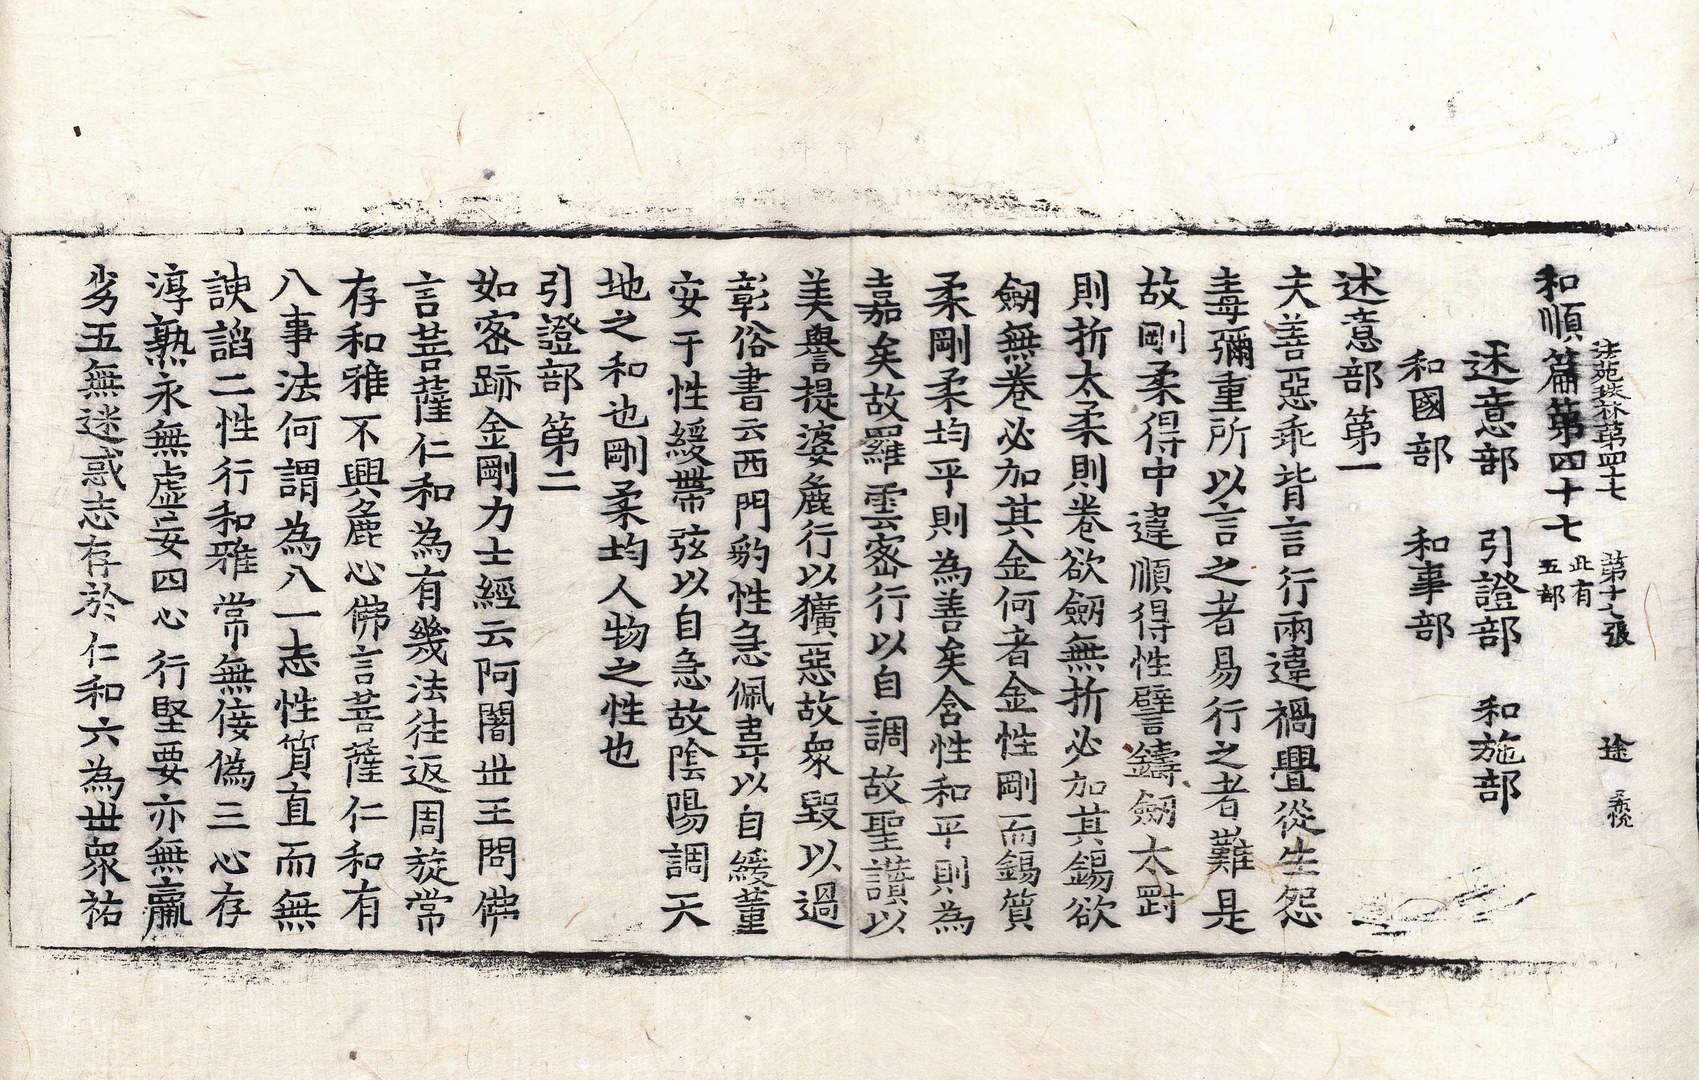 法苑珠林第四十七 第十七張 途 承悅
和順篇第四十七 此有五部
述意部 引證部 和施部
和國部 和事部
述意部第一
夫善惡乖背言行兩違禍舋從生怨
毒彌重所以言之者易行之者難是
故剛柔得中違順得性譬鑄劒太剛
則折太柔則卷欲劒無折必加其錫欲
劒無卷必加其金何者金性剛而錫質
柔剛柔均平則為善矣含性和平則為
嘉矣故羅雲密行以自調故聖讚以
美譽提婆麁行以獷惡故衆毀以過
彰俗書云西門豹性急佩韋以自緩董
安于性緩帶弦以自急故陰陽調天
地之和也剛柔均人物之性也
引證部第二
如密跡金剛力士經云阿闍世王問佛
言菩薩仁和為有幾法往返周旋常
存和雅不興麁心佛言菩薩仁和有
八事法何謂為八一志性質直而無
諛諂二性行和雅常無佞偽三心存
淳熟永無虛妄四心行堅要亦無羸
劣五無迷惑志存於仁和六為世衆祐